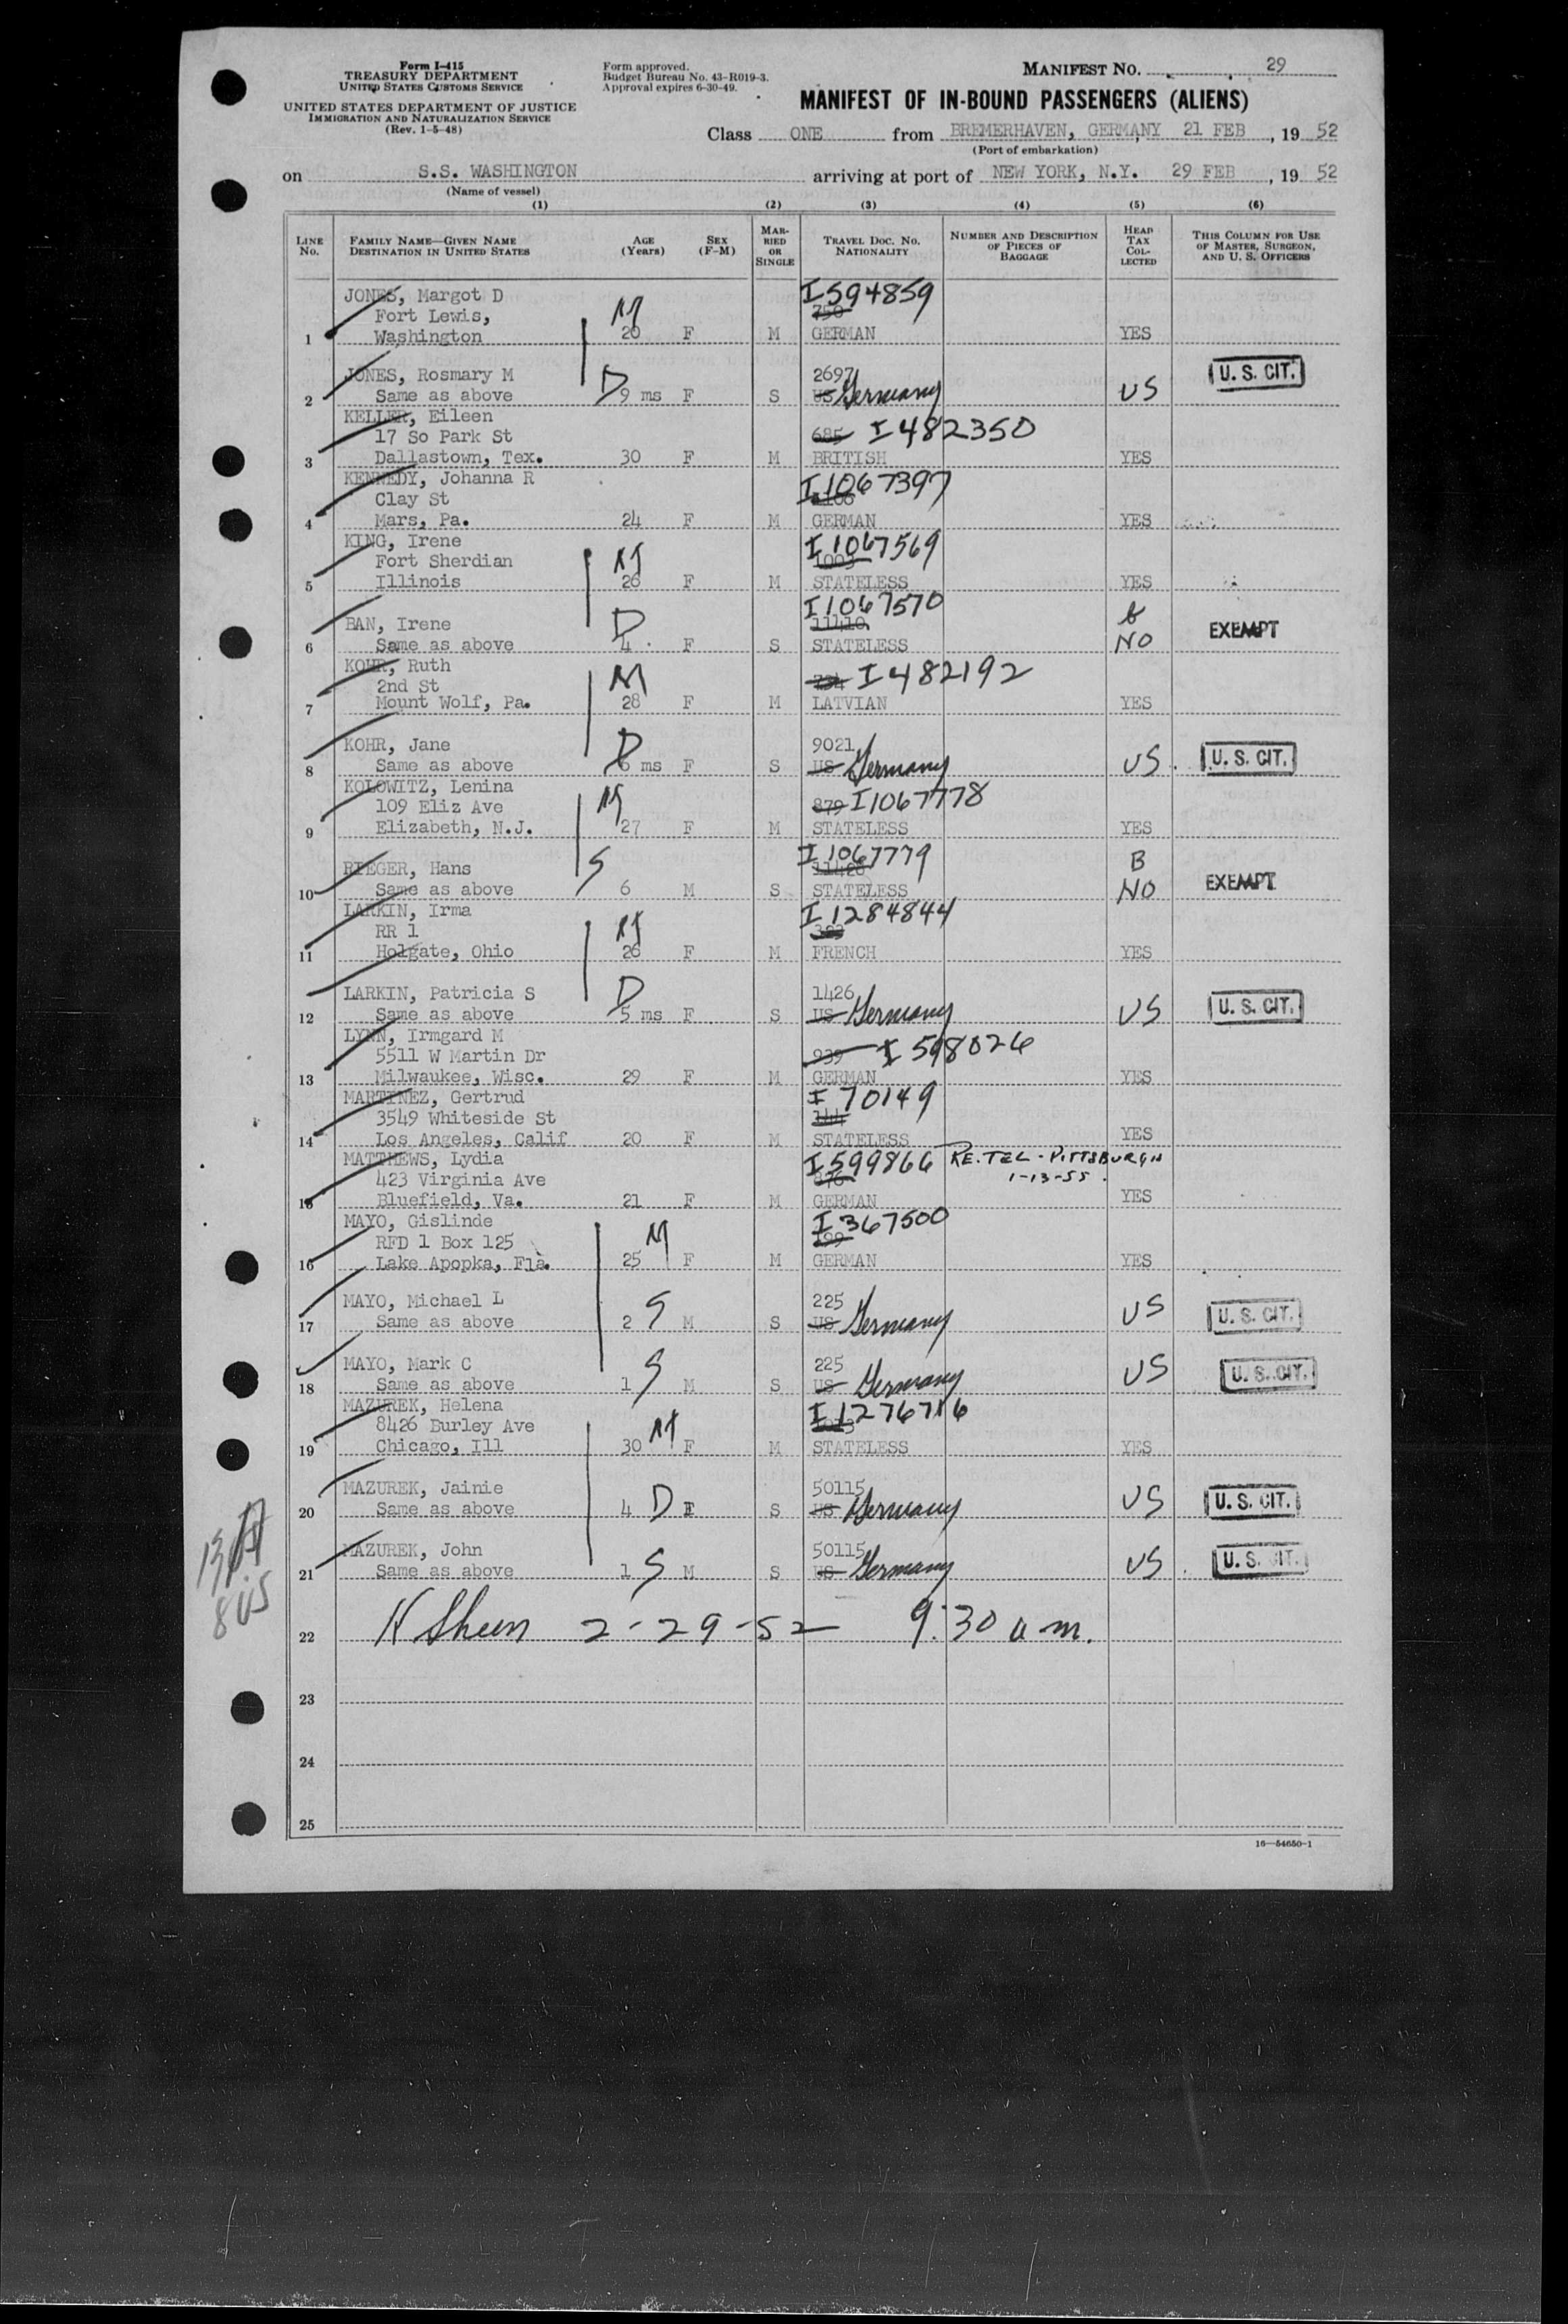 Form I-415
TREASURY DEPARTMENT
UNITED STATES CUSTOMS SERVICE
UNITED STATES DEPARTMENT OF JUSTICE
IMMIGRATION AND NATURALIZATION SERVICE
(Rev. 1-5-48)
Form approved.
Budget Bureau No. 43-R019-3.
Approval expires 6-30-49.
MANIFEST NO. 29
MANIFEST OF IN-BOUND PASSENGERS (ALIENS)
Class ONE from BREMERHAVEN, GERMANY 21 FEB, 19 52
(Port of embarkation)
on S.S. WASHINGTON arriving at port of NEW YORK, N.Y. 29 FEB, 19 52
(Name of vessel)
(1) (2) (3) (4) (5) (6)
LINE NO. FAMILY NAME—GIVEN NAME DESTINATION IN UNITED STATES AGE (Years) SEX (F-M) MARRIED OR SINGLE TRAVEL DOC. NO. NATIONALITY NUMBER AND DESCRIPTION OF PIECES OF BAGGAGE HEAD TAX COLLECTED THIS COLUMN FOR USE OF MASTER, SURGEON, AND U. S. OFFICERS
JONES, Margot D I 594859
Fort Lewis, M 750
1 Washington 20 F M GERMAN YES
JONES, Rosmary M 2697 U. S. CIT.
2 Same as above D 9 ms F S US Germany US
KELLER, Eileen
17 So Park St 685 I 482350
3 Dallastown, Tex. 30 F M BRITISH YES
KENNEDY, Johanna R I 1067397
Clay St
4 Mars, Pa. 24 F M GERMAN YES
KING, Irene I 1067569
Fort Sherdian M 1003
5 Illinois 26 F M STATELESS YES
I 1067570
BAN, Irene D 11410 EXEMPT
6 Same as above 4 F S STATELESS NO
KOHR, Ruth
2nd St M I 482192
7 Mount Wolf, Pa. 28 F M LATVIAN YES
KOHR, Jane D 9021
8 Same as above 6 ms F S US Germany US U. S. CIT.
KOLOWITZ, Lenina
109 Eliz Ave M 879 I 1067778
9 Elizabeth, N.J. 27 F M STATELESS YES
I 1067779 B
RIEGER, Hans S EXEMPT
10 Same as above 6 M S STATELESS NO
LARKIN, Irma I 1284844
RR 1 M
11 Holgate, Ohio 26 F M FRENCH YES
LARKIN, Patricia S D 1426
12 Same as above 5 ms F S US Germany US U. S. CIT.
LYNN, Irmgard M
5511 W Martin Dr 939 I 598026
13 Milwaukee, Wisc. 29 F M GERMAN YES
MARTINEZ, Gertrud I 70149
3549 Whiteside St 144
14 Los Angeles, Calif 20 F M STATELESS YES
MATTHEWS, Lydia I 599866 RE. TEL - PITTSBURGH
423 Virginia Ave 976 1-13-55.
15 Bluefield, Va. 21 F M GERMAN YES
MAYO, Gislinde I 367500
RFD 1 Box 125 M 199
16 Lake Apopka, Fla. 25 F M GERMAN YES
MAYO, Michael L 225
17 Same as above 2 S M S US Germany US U. S. CIT.
MAYO, Mark C 225
18 Same as above 1 S M S US Germany US U. S. CIT.
MAZUREK, Helena I 1276716
8426 Burley Ave M
19 Chicago, Ill 30 F M STATELESS YES
MAZUREK, Jainie 50115
20 Same as above 4 D F S US Germany US U. S. CIT.
MAZUREK, John 50115
21 Same as above 1 S M S US Germany US U. S. CIT.
13 A
8 US
22 H Sheen 2-29-52 9:30 a.m.
23
24
25
16—54650-1